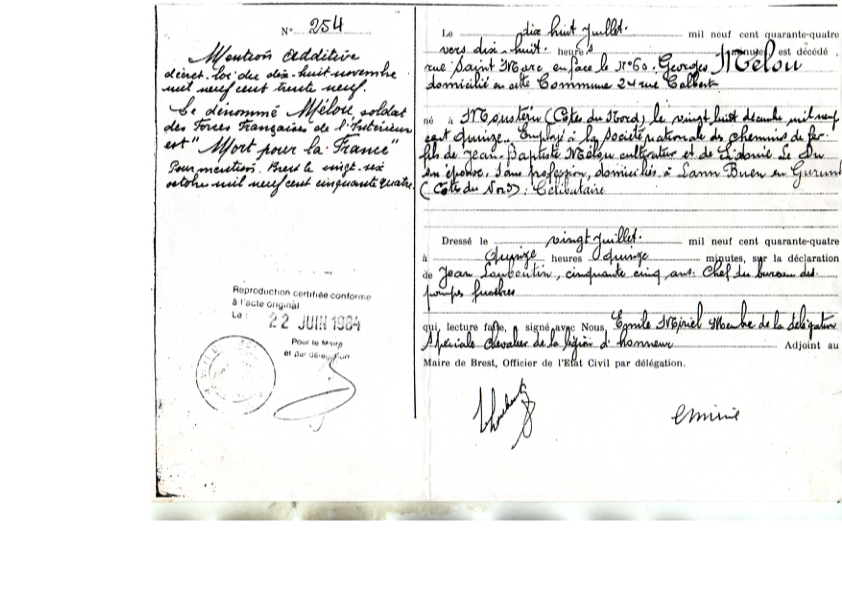 N° 254
Mention additive
décret-loi du dix-huit novembre
mil neuf cent trente neuf.
Le dénommé Mélou soldat
des Forces Françaises de l'Intérieur
est "Mort pour la France"
Pour mention. Brest le vingt-six
octobre mil neuf cent cinquante quatre.
Reproduction certifiée conforme
à l'acte original
Le : 22 JUIN 1984
Pour le Maire
et par délégation
Le dix huit Juillet. mil neuf cent quarante-quatre
vers dix-huit. heures minutes est décédé
rue Saint Marc en face le N°60. Georges Mélou
domicilié en cette Commune 24 rue Colbert
né à Moustéru (Côtes du Nord) le vingt huit décembre mil neuf
cent quinze. Employé à la Société nationale des chemins de fer.
fils de Jean-Baptiste Mélou cultivateur et de Le Du
son épouse, sans profession, domiciliés à Lann Buen en
(Côtes du Nord). Célibataire
Dressé le vingt Juillet. mil neuf cent quarante-quatre
à Quinze heures quinze minutes, sur la déclaration
de Jean cinquante cinq ans. Chef du bureau des
pompes funèbres
qui, lecture faite, a signé avec Nous, Emile Membre de la délégation
Spéciale Chevalier de la légion d'honneur Adjoint au
Maire de Brest, Officier de l'Etat Civil par délégation.